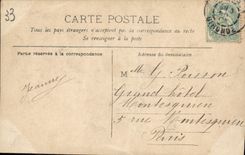 33
CARTE POSTALE
Tous les pays étrangers n'acceptent pas la correspondance au recto
Se renseigner à la poste
Partie réservée à la correspondance
Adresse du destinataire
Jeanne
M. G. Poisson
Grand hôtel
Montesquieu
5 rue Montesquieu
Paris